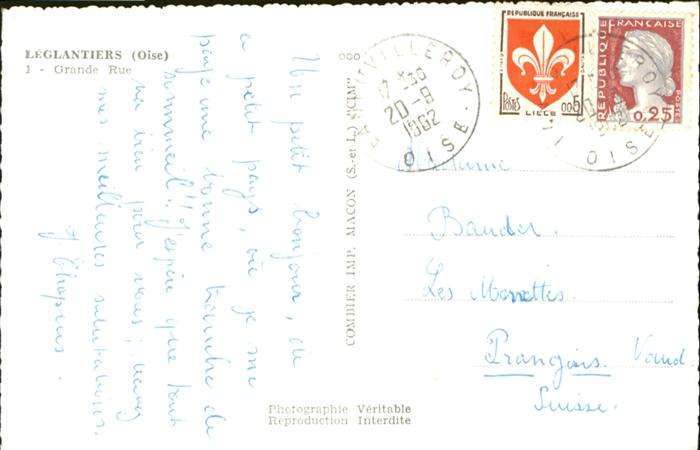 LÉGLANTIERS (Oise)
1 - Grande Rue
Un petit bonjour, de
ce petit pays, où je me
paye une bonne tranche de
sommeil! J'espère que tout
va bien pour vous; recevez
mes meilleures salutations.
J. Chapuis.
COMBIER IMP. MACON (S.-et-L.) "CIM"
Photographie Véritable
Reproduction Interdite
VILLEROY
17 H 30
20-8
1962
OISE
REPUBLIQUE FRANÇAISE
POSTES
0,05
LILLE
REPUBLIQUE FRANÇAISE
POSTES
0,25
OISE
Bauder.
Les
Prangois. Vaud
Suisse.